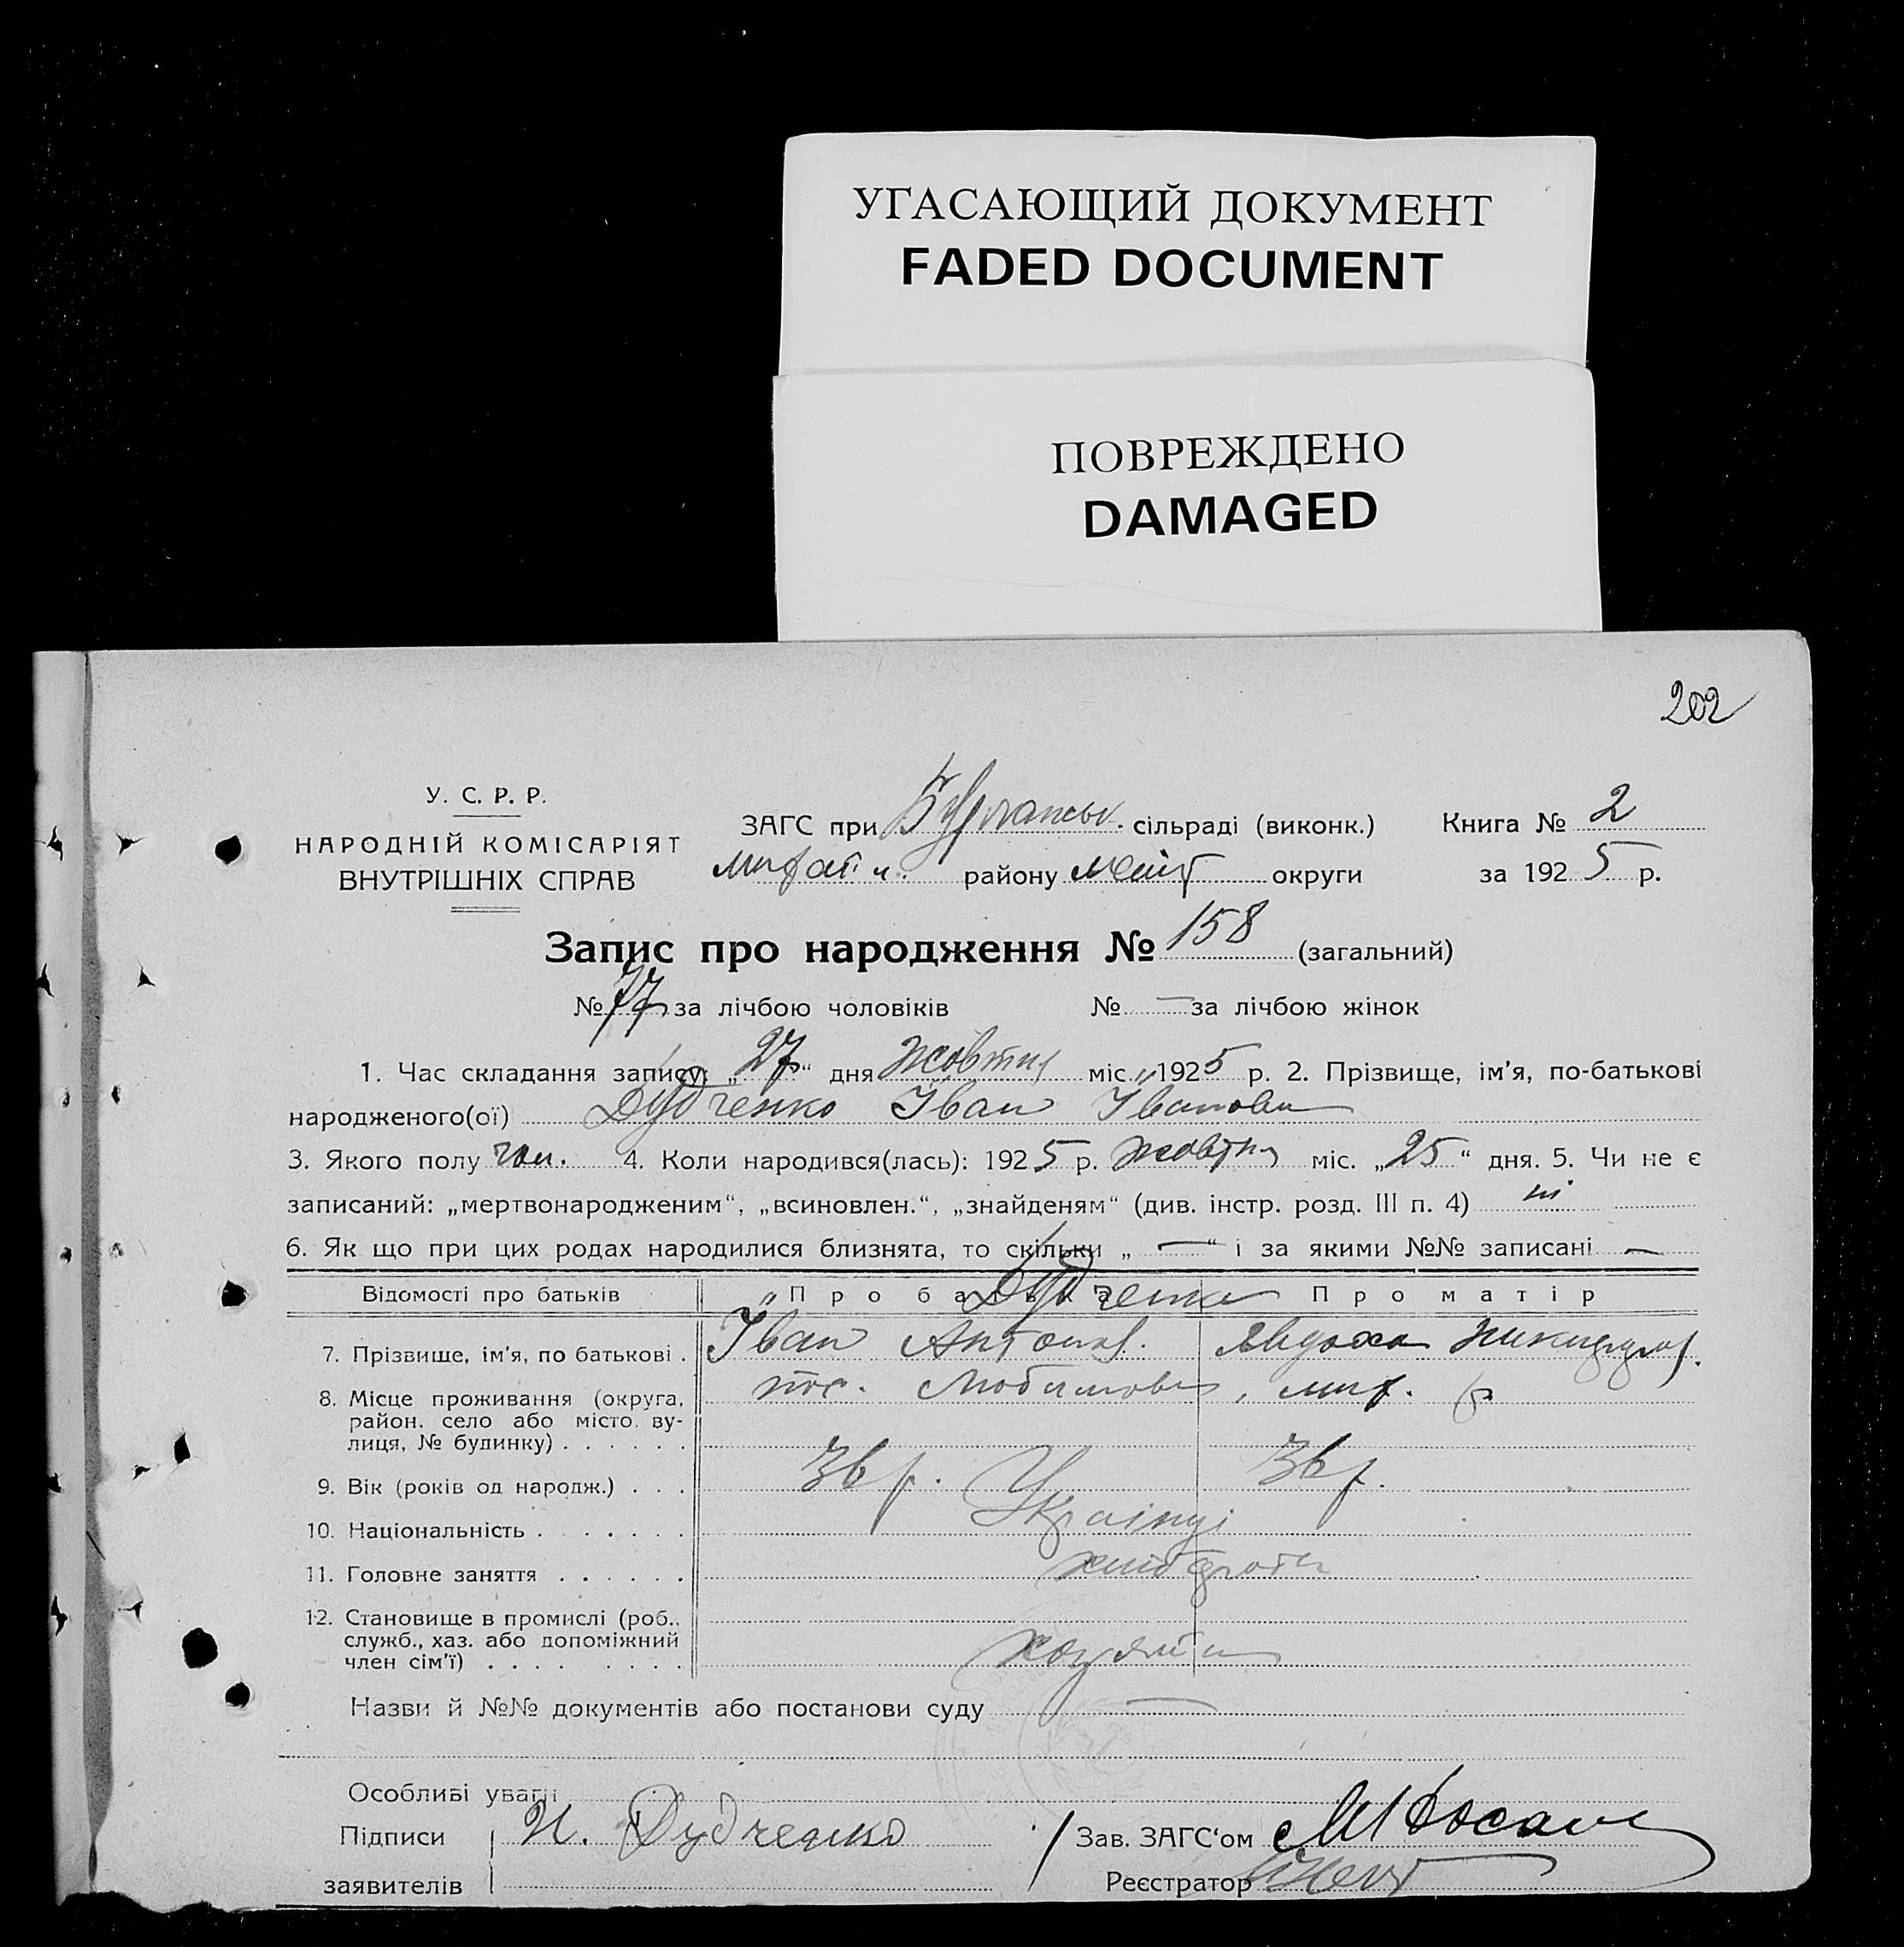 УГАСАЮЩИЙ ДОКУМЕНТ
FADED DOCUMENT
ПОВРЕЖДЕНО
DAMAGED
202
У. С. Р. Р.
НАРОДНІЙ КОМІСАРІЯТ
ВНУТРІШНІХ СПРАВ
ЗАГС при сільраді (виконк.) Книга № 2
району округи за 1925 р.
Запис про народження № 158 (загальний)
№ 77 за лічбою чоловіків № — за лічбою жінок
1. Час складання запису: „27“ дня Жовтня міс. 1925 р. 2. Прізвище, ім'я, по-батькові
народженого(ої) Дудченко Іван Іванови
3. Якого полу чол. 4. Коли народився(лась): 1925 р. Жовтня міс. „25“ дня. 5. Чи не є
записаний: „мертвонародженим“, „всиновлен.“, „знайденям“ (див. інстр. розд. III п. 4) ні
6. Як що при цих родах народилися близнята, то скільки „—“ і за якими №№ записані —
Відомості про батьків Про батька Про матір
Дудченко
7. Прізвище, ім'я, по батькові . Іван Антонов. Явдоха
8. Місце проживання (округа, пос.
район, село або місто, ву-
лиця, № будинку) . . . . . .
9. Вік (років од народж.) . . . 36 р. 36 р.
10. Національність . . . . . . . Українці
11. Головне заняття . . . . . . хлібороби
12. Становище в промислі (роб.,
служб., хаз. або допоміжний
член сім'ї) . . . . . . . . хозяїн
Назви й №№ документів або постанови суду —
Особливі уваги
Підписи И. Дудченко Зав. ЗАГС'ом
заявителів Реєстратор